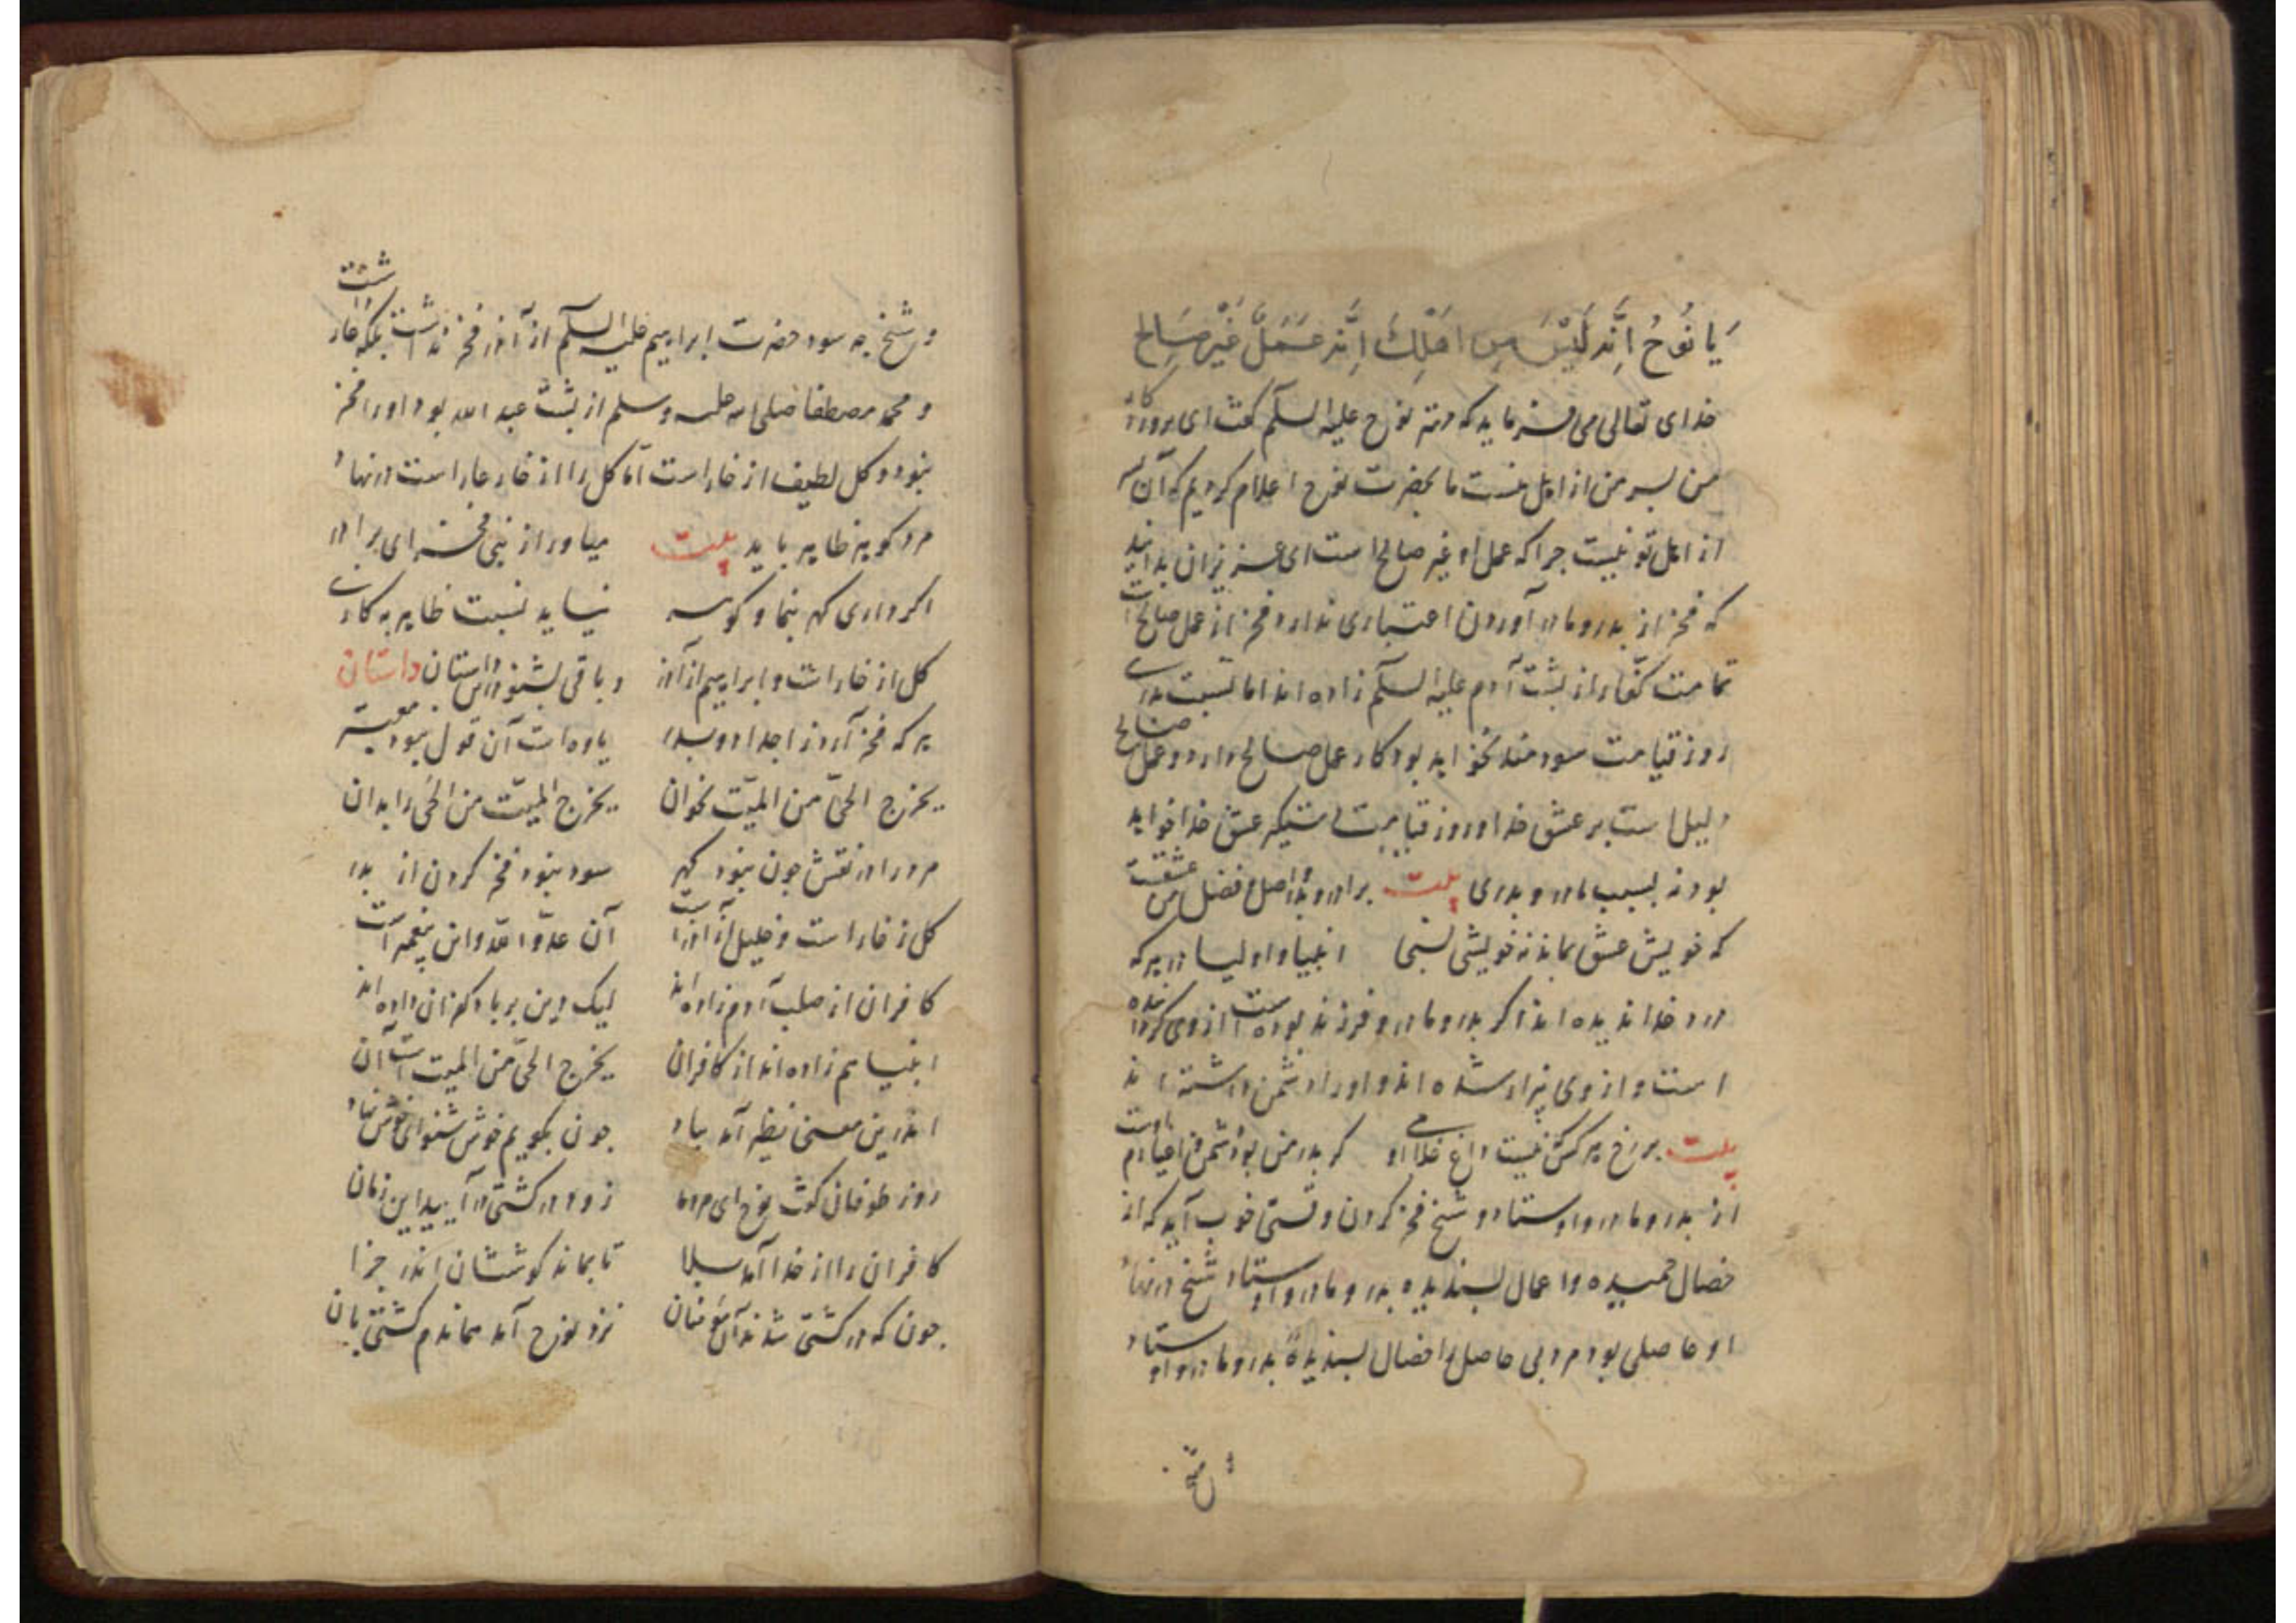 یا نُوحُ اِنَّهُ لَیْسَ مِن اَهْلِكَ اِنَّهُ عَمَلٌ غَیْرُ صَالِح
خدای تعالی می فرماید که وقتی نوح علیه السلم گفت ای پروردکار
من پسر من از اهل منست ما بحضرت نوح اعلام کردیم که آن
از اهل تو نیست جرا که عمل او غیر صالح است ای عزیزان بدانید
که فخر از بدر و مادر آوردن اعتباری ندارد فخر از عمل صالح است
تمامت کفار از بشت آدم علیه السلم زاده اند اما نسبت بدری
روز قیامت سودمند نخواهد بود کار عمل صالح دارد و عمل صالح
دلیل است بر عشق خدا و روز قیامت عشق خدا خواهد
بود نه بسبب مادر و بدری بیت برادر و بدر و اصل و فضل من عشقست
که خویش عشق بماند نه خویشی نسبی انبیا و اولیا در هر که
درد خدا ندیده اند اکر بدر و مادر و فرزند بوده است از وی
است و از وی بیزار شده اند و اورا دشمن داشته اند
بیت بر رخ هر کس که نیست داغ غلامی او کر بدر من بود دشمن و اغیارم اوست
از بدر و مادر و اوستاد و شیخ فخر کردن وقتی خوب آید که از
خصال حمیده و اعمال بسندیده بدر و مادر و اوستاد و شیخ در نهاد
او حاصلی بود مرد بی حاصل را خصال بسندیده بدر و مادر و اوستاد
و شیخ
و شیخ جه سود حضرت ابراهیم علیه السلم از آذر فخر نداشت بلکه عار داشت
و محمد مصطفا صلی الله علیه وسلم از بشت عبد الله بود او را فخر
نبود و کل لطیف از خار است اما کل را از خار عار است در نهاد
مرد کوهر ظاهر باید بیت میاور از نبی فخر ای برادر
اکر داری کهر بنما و کونه نیاید نسبت ظاهر به کاری
کل از خار است و ابراهیم از آذر و باقی بشنو در این داستان داستان
هر که فخر آرد ز اجداد و بدر یاوه است آن قول نبود معتبر
یخرج الحیّ من المیّت بخوان یخرج المیّت من الحیّ را بدان
مرد را در نفس جون نبود کهر سود نبود فخر کردن از بدر
کل ز خار است و خلیل از آذر است آن عدوّ الله و این بیغمبر است
کافران از صلب آدم زاده اند لیک دین بر باد کفران داده اند
انبیا هم زاده اند از کافران یخرج الحیّ من المیت است آن
اندرین معنی نظیر آمد بیاد جون بکویم خوش شنو ای خوش نهاد
روز طوفان کفت نوح ای مردمان زود در کشتی در آیید این زمان
کافران را از خدا آمد بلا تا بماند کوششان اندر جزا
جون که در کشتی شدند آن مؤمنان نزد نوح آمد هماندم کشتی بان